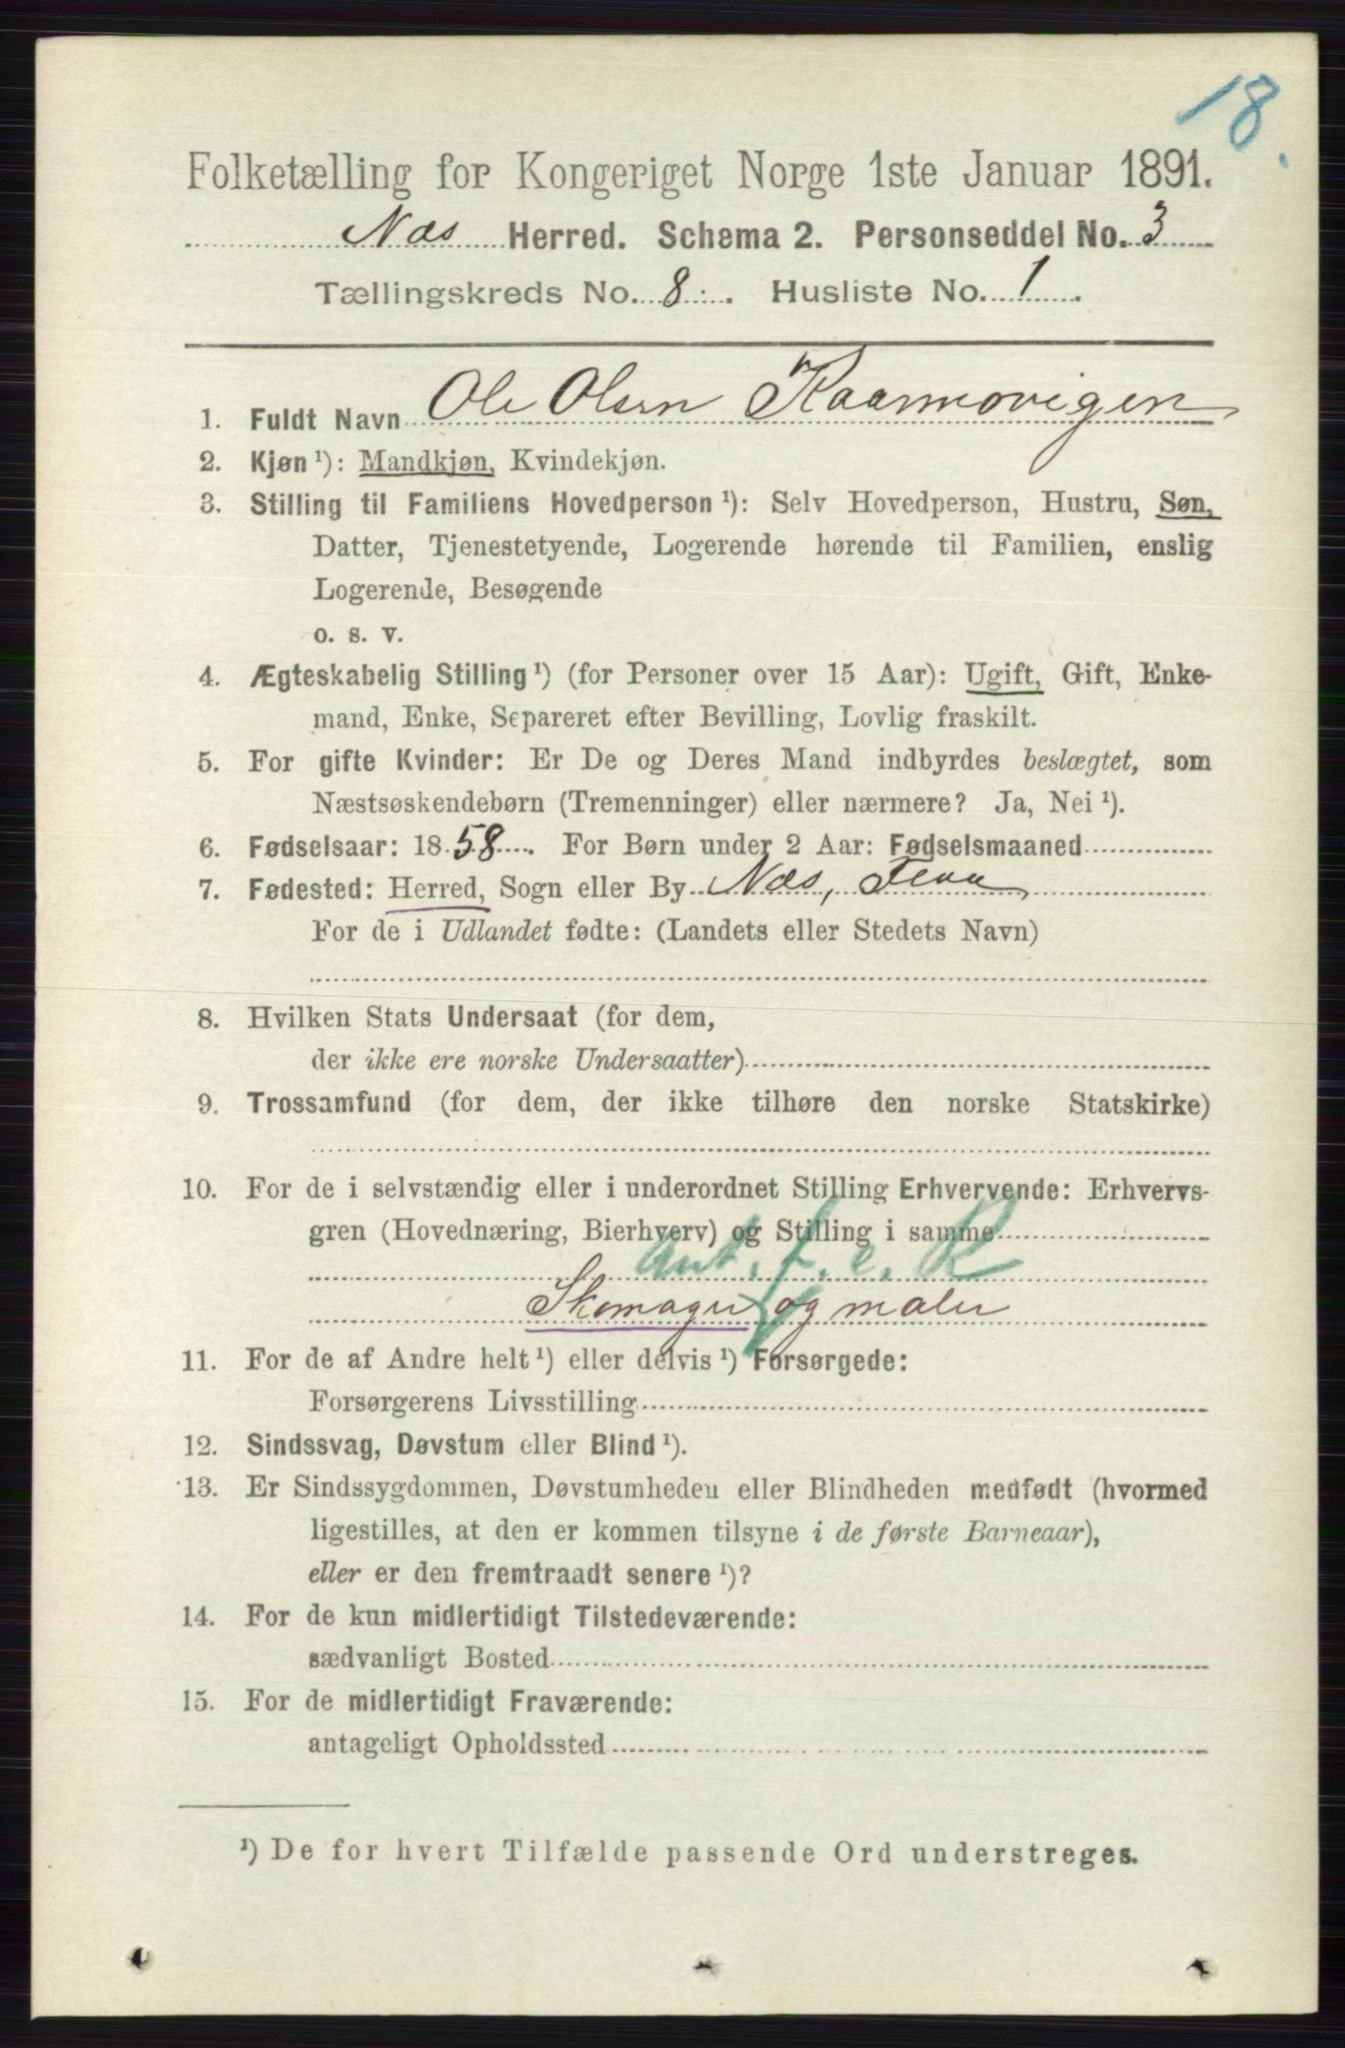 18.
Folketælling for Kongeriget Norge 1ste Januar 1891.
Næs Herred. Schema 2. Personseddel No. 3
Tællingskreds No. 8. Husliste No. 1.
1. Fuldt Navn Ole Olsen Kaarmovigen
2. Kjøn ¹): Mandkjøn, Kvindekjøn.
3. Stilling til Familiens Hovedperson ¹): Selv Hovedperson, Hustru, Søn,
Datter, Tjenestetyende, Logerende hørende til Familien, enslig
Logerende, Besøgende
o. s. v.
4. Ægteskabelig Stilling ¹) (for Personer over 15 Aar): Ugift, Gift, Enke-
mand, Enke, Separeret efter Bevilling, Lovlig fraskilt.
5. For gifte Kvinder: Er De og Deres Mand indbyrdes beslægtet, som
Næstsøskendebørn (Tremenninger) eller nærmere? Ja, Nei ¹).
6. Fødselsaar: 1858. For Børn under 2 Aar: Fødselsmaaned
7. Fødested: Herred, Sogn eller By Næs, Flaa
For de i Udlandet fødte: (Landets eller Stedets Navn)
8. Hvilken Stats Undersaat (for dem,
der ikke ere norske Undersaatter)
9. Trossamfund (for dem, der ikke tilhøre den norske Statskirke)
10. For de i selvstændig eller i underordnet Stilling Erhvervende: Erhvervs-
gren (Hovednæring, Bierhverv) og Stilling i samme
Ant. f. e. R
Skomager og maler
11. For de af Andre helt ¹) eller delvis ¹) Forsørgede:
Forsørgerens Livsstilling
12. Sindssvag, Døvstum eller Blind ¹).
13. Er Sindssygdommen, Døvstumheden eller Blindheden medfødt (hvormed
ligestilles, at den er kommen tilsyne i de første Barneaar),
eller er den fremtraadt senere ¹)?
14. For de kun midlertidigt Tilstedeværende:
sædvanligt Bosted
15. For de midlertidigt Fraværende:
antageligt Opholdssted
¹) De for hvert Tilfælde passende Ord understreges.